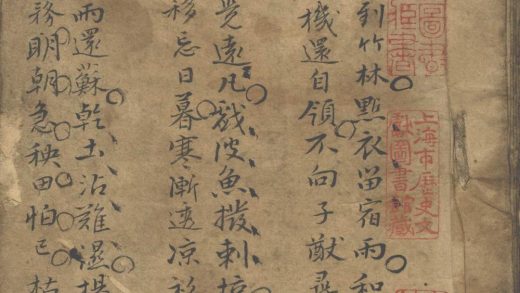 圖書
上海市歷史文
獻圖書館藏
到竹林點衣留宿雨和
機還自領不向子猷尋
覺遠凡戲波魚撥剌
移忘日暮寒漸透涼
雨還蘇乾土沾難濕
務明朝急秧田怕已枯